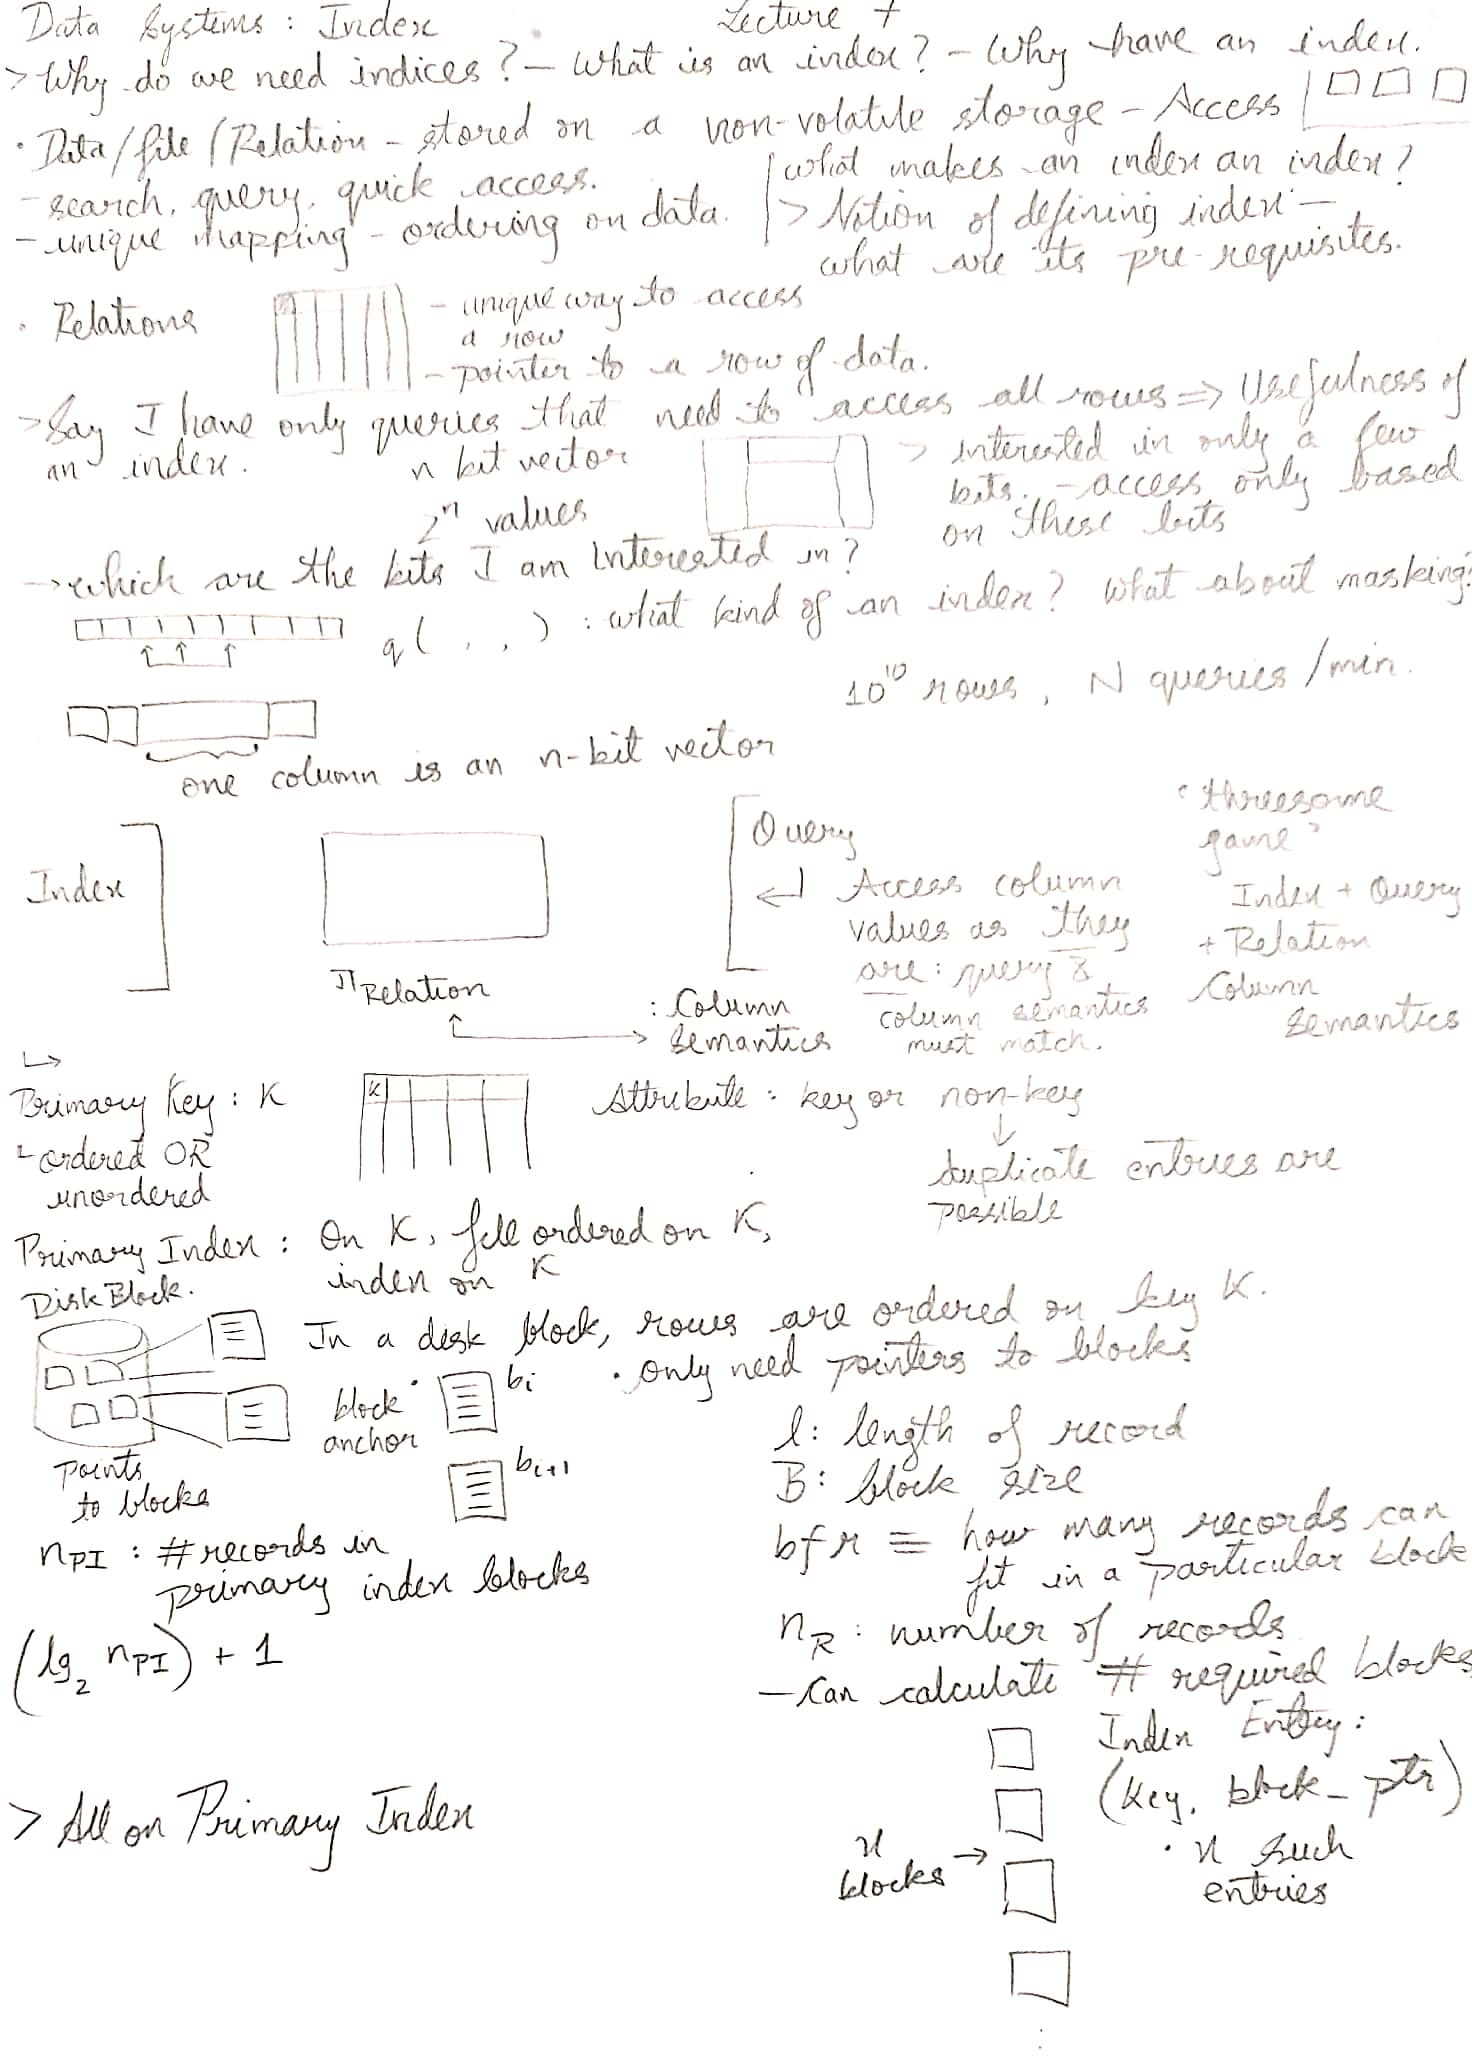 Data Systems : Index
Lecture 7
> Why do we need indices? – What is an index? – Why have an index.
• Data/file/Relation – stored on a non-volatile storage – Access
– search, query, quick access.
– unique mapping – ordering on data.
what makes an index an index?
> Notion of defining index –
what are its pre-requisites.
• Relations
– unique way to access
a row
– pointer to a row of data.
> Say I have only queries that need to access all rows ⇒ Usefulness of
an index.
n bit vector
2ⁿ values
> interested in only a few
bits. – access only based
on these bits
→ which are the bits I am interested in?
q( , , ) : what kind of an index? What about masking?
10¹⁰ rows, N queries/min.
one column is an n-bit vector
Index
π Relation
Query
↵ Access column
values as they
are : query &
column semantics
must match.
: Column
Semantics
'threesome
game'
Index + Query
+ Relation
Column
Semantics
Primary Key : K
ordered OR
unordered
K
Attribute : key or non-key
↓
duplicate entries are
possible
Primary Index : On K, file ordered on K,
index on K
Disk Block.
In a disk block, rows are ordered on key K.
• only need pointers to blocks
block
anchor
bi
bi+1
points
to blocks
l : length of record
B : block size
bfr ≡ how many records can
fit in a particular block
nR : number of records
– Can calculate # required blocks
nPI : # records in
primary index blocks
(lg₂ nPI) + 1
Index Entry :
(Key, block_ptr)
• x such
entries
x
blocks →
> All on Primary Index